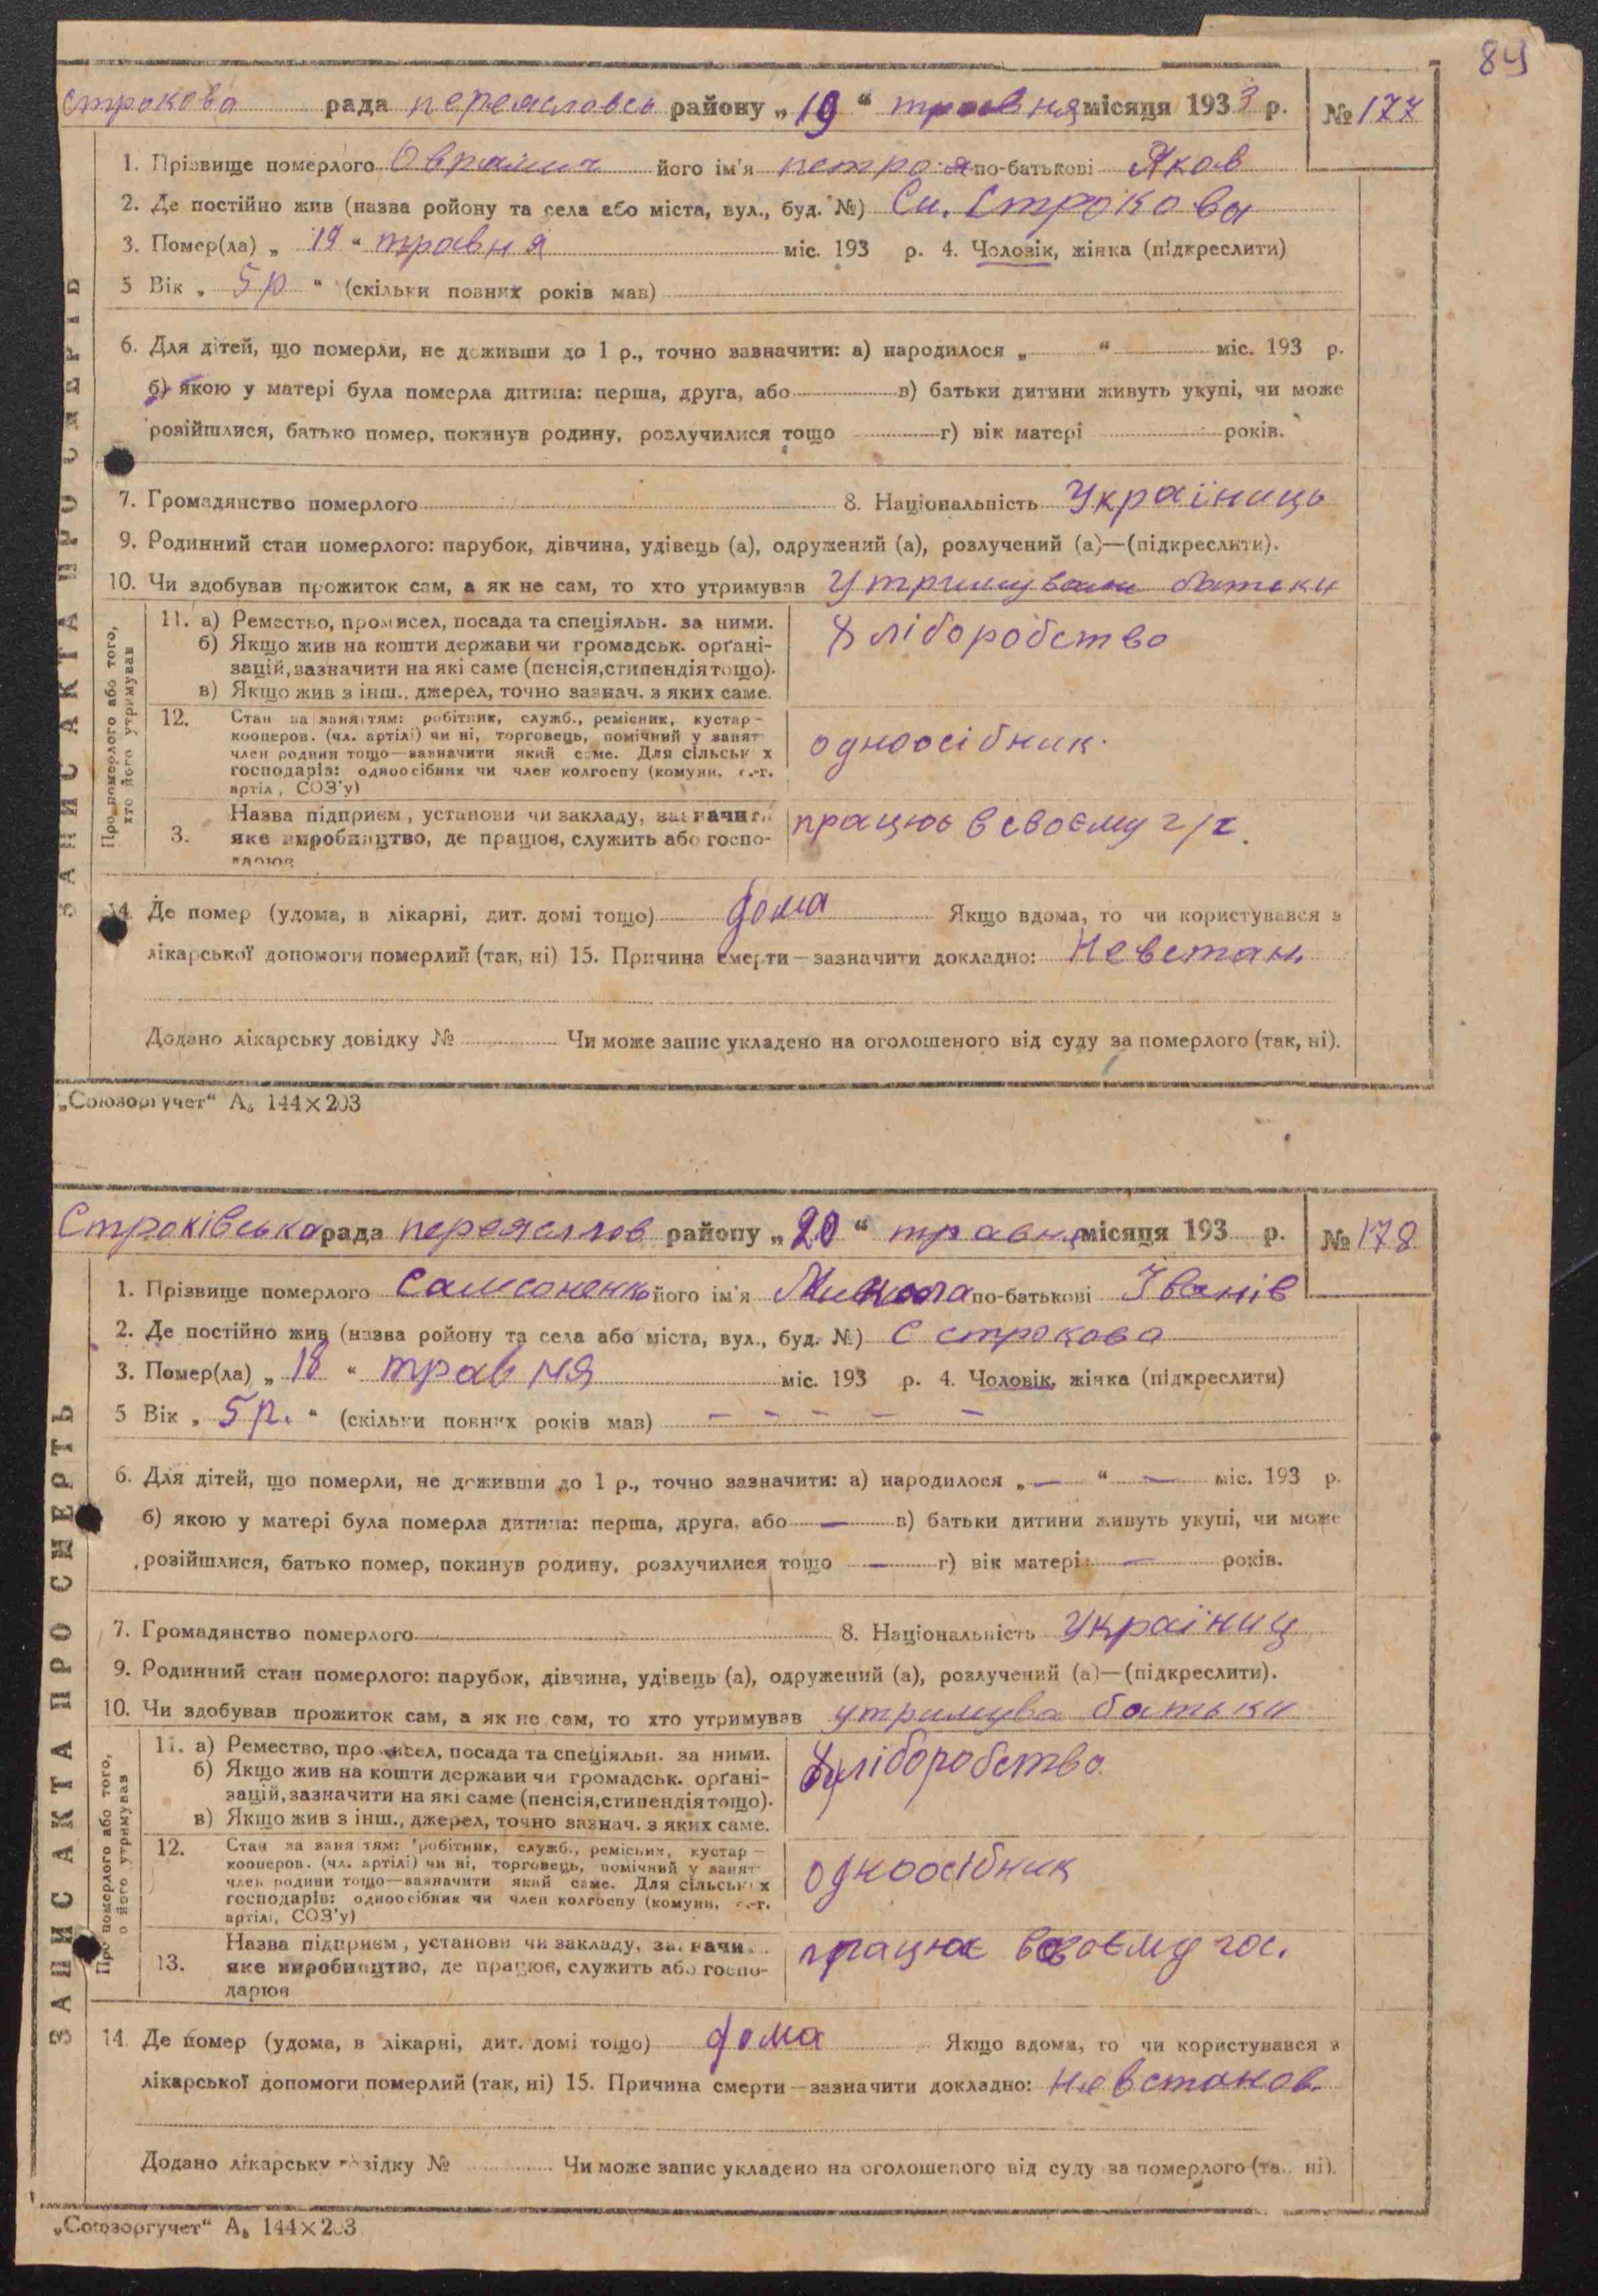 84
строкова рада переяславсь району „19“ травня місяця 1933 р. № 177
1. Прізвище померлого Оврамич його ім'я петро по-батькові Яков
2. Де постійно жив (назва ройону та села або міста, вул., буд. №) См. Строкова
3. Помер(ла) „19“ травня міс. 193 р. 4. Чоловік, жінка (підкреслити)
5 Вік „5р“ (скільки повних років мав)
6. Для дітей, що померли, не доживши до 1 р., точно зазначити: а) народилося „ “ міс. 193 р.
б) якою у матері була померла дитина: перша, друга, або в) батьки дитини живуть укупі, чи може
розійшлися, батько помер, покинув родину, розлучилися тощо г) вік матері років.
7. Громадянство померлого 8. Національність Україниць
9. Родинний стан померлого: парубок, дівчина, удівець (а), одружений (а), розлучений (а)—(підкреслити).
10. Чи здобував прожиток сам, а як не сам, то хто утримував Утримували батьки
ЗАПИС АКТА ПРО СМЕРТЬ
Про померлого або того,
хто його утримував
11. а) Ремество, промисел, посада та спеціяльн. за ними.
б) Якщо жив на кошти держави чи громадськ. орґані-
зацій, зазначити на які саме (пенсія, стипендія тощо).
в) Якщо жив з інш., джерел, точно зазнач. з яких саме.
Хліборобство
12. Стан за заняттям: робітник, служб., ремісник, кустар—
кооперов. (чл. артілі) чи ні, торговець, помічний у занят
член родини тощо—зазначити який саме. Для сільськ х
господарів: одноосібник чи член колгоспу (комуни, с.-г.
артіл, СОЗ'у)
одноосібник.
3. Назва підприєм, установи чи закладу, зазначити
яке виробництво, де працює, служить або госпо-
дарює
працює в своєму г/х.
14. Де помер (удома, в лікарні, дит. домі тощо) дома Якщо вдома, то чи користувався з
лікарської допомоги померлий (так, ні) 15. Причина смерти—зазначити докладно: Невстан.
Додано лікарську довідку № Чи може запис укладено на оголошеного від суду за померлого (так, ні).
„Союзоргучет“ А₅ 144×203
Строківська рада переяслов району „20“ травня місяця 193 р. № 178
1. Прізвище померлого Самсоненко його ім'я Микола по-батькові Іванів
2. Де постійно жив (назва ройону та села або міста, вул., буд. №) С строкова
3. Помер(ла) „18“ травня міс. 193 р. 4. Чоловік, жінка (підкреслити)
5 Вік „5р.“ (скільки повних років мав) – – – – –
6. Для дітей, що померли, не доживши до 1 р., точно зазначити: а) народилося „—“ — міс. 193 р.
б) якою у матері була померла дитина: перша, друга, або — в) батьки дитини живуть укупі, чи може
розійшлися, батько помер, покинув родину, розлучилися тощо — г) вік матері — років.
7. Громадянство померлого 8. Національність Україниц
9. Родинний стан померлого: парубок, дівчина, удівець (а), одружений (а), розлучений (а)—(підкреслити).
10. Чи здобував прожиток сам, а як не сам, то хто утримував утримува батьки
ЗАПИС АКТА ПРО СМЕРТЬ
Про померлого або того,
о його утримував
11. а) Ремество, промисел, посада та спеціяльн. за ними.
б) Якщо жив на кошти держави чи громадськ. орґані-
зацій, зазначити на які саме (пенсія, стипендія тощо).
в) Якщо жив з інш., джерел, точно зазнач. з яких саме.
Хліборобство
12. Стан за заняттям: робітник, служб., ремісник, кустар—
кооперов. (чл. артілі) чи ні, торговець, помічний у занят
член родини тощо—зазначити який саме. Для сільськ х
господарів: одноосібник чи член колгоспу (комуни, с.-г.
артілі, СОЗ'у)
одноосібник
13. Назва підприєм, установи чи закладу, зазначи
яке виробництво, де працює, служить або госпо-
дарює
працює в своєму гос.
14. Де помер (удома, в лікарні, дит. домі тощо) дома Якщо вдома, то чи користувався з
лікарської допомоги померлий (так, ні) 15. Причина смерти—зазначити докладно: Невстанов.
Додано лікарську довідку № Чи може запис укладено на оголошеного від суду за померлого (та.. ні).
„Союзоргучет“ А₅ 144×203